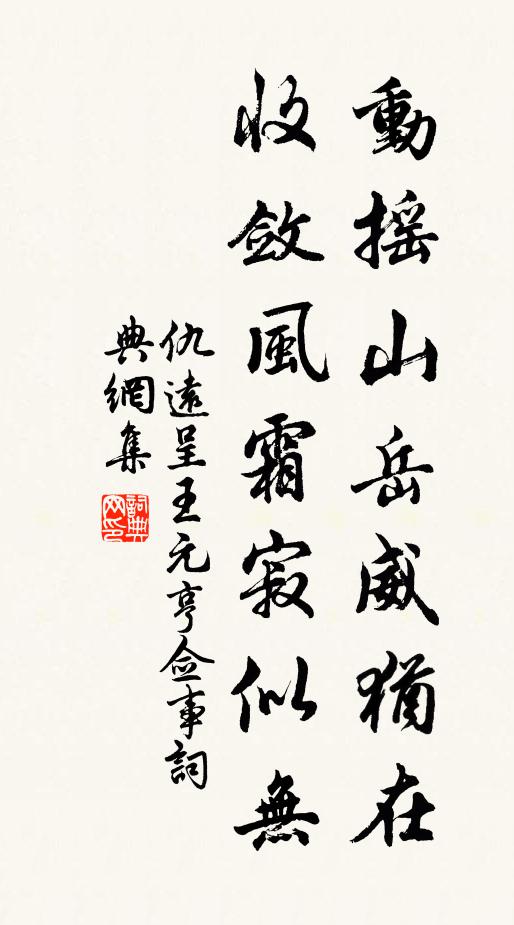 動摇山岳威猶在
收斂風霜寂似無
仇遠呈王元亨僉事詞
典網集
詞典
网印